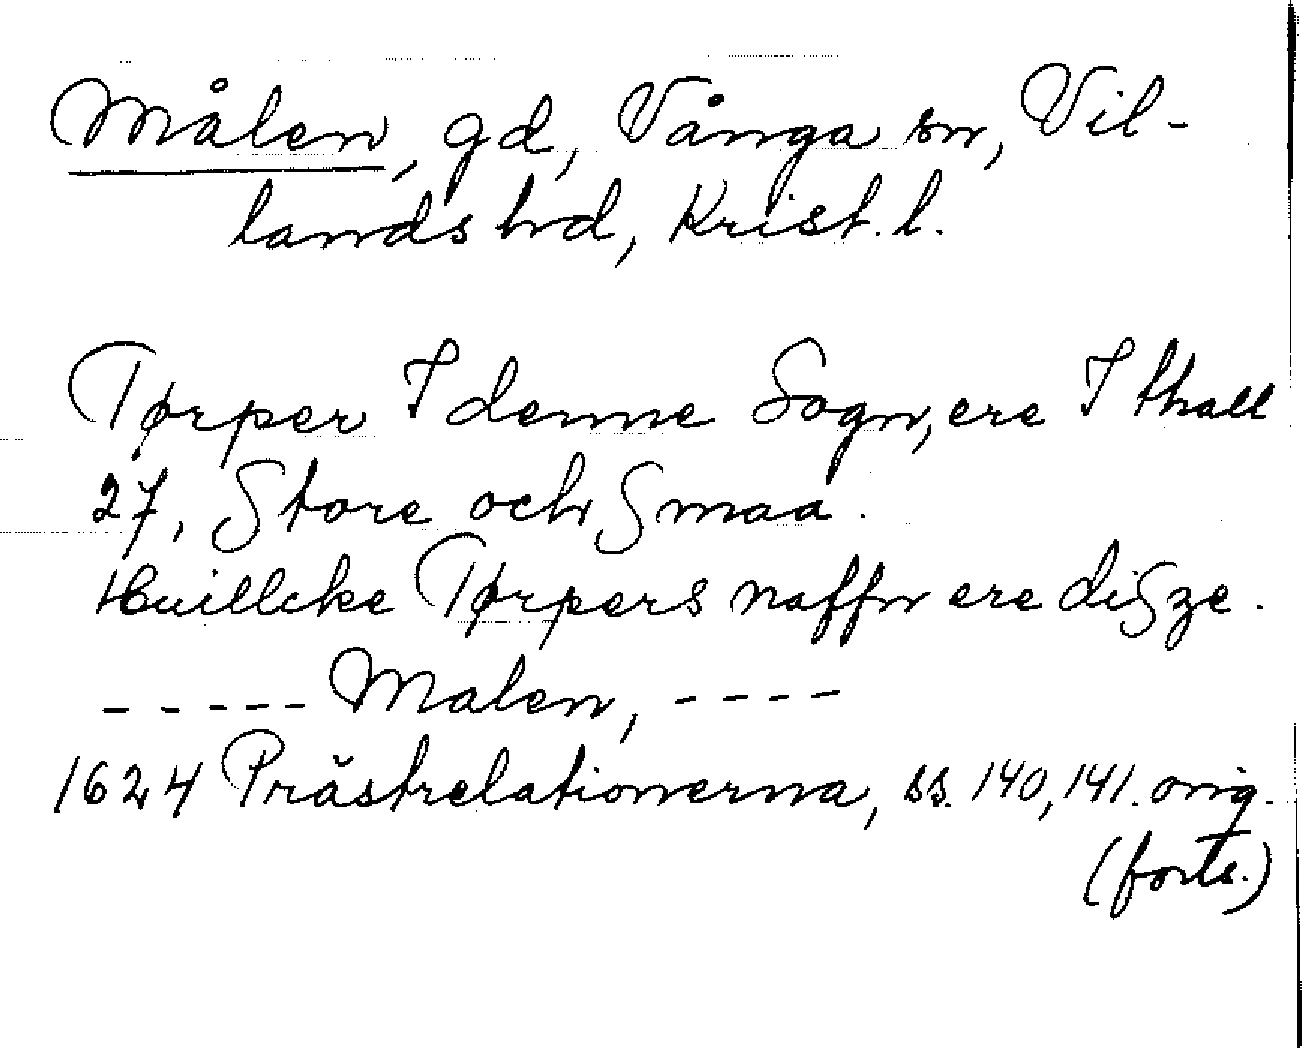 Målen, gd, Vånga sn, Vil-
lands hd, Krist. l.
Tørper I denne Sogn, ere I thall
27, Store och Smaa.
Huillcke Tørpers naffn ere disze.
----- Malen, ----
1624 Prästrelationerna, ss. 140, 141. orig.
(forts.)